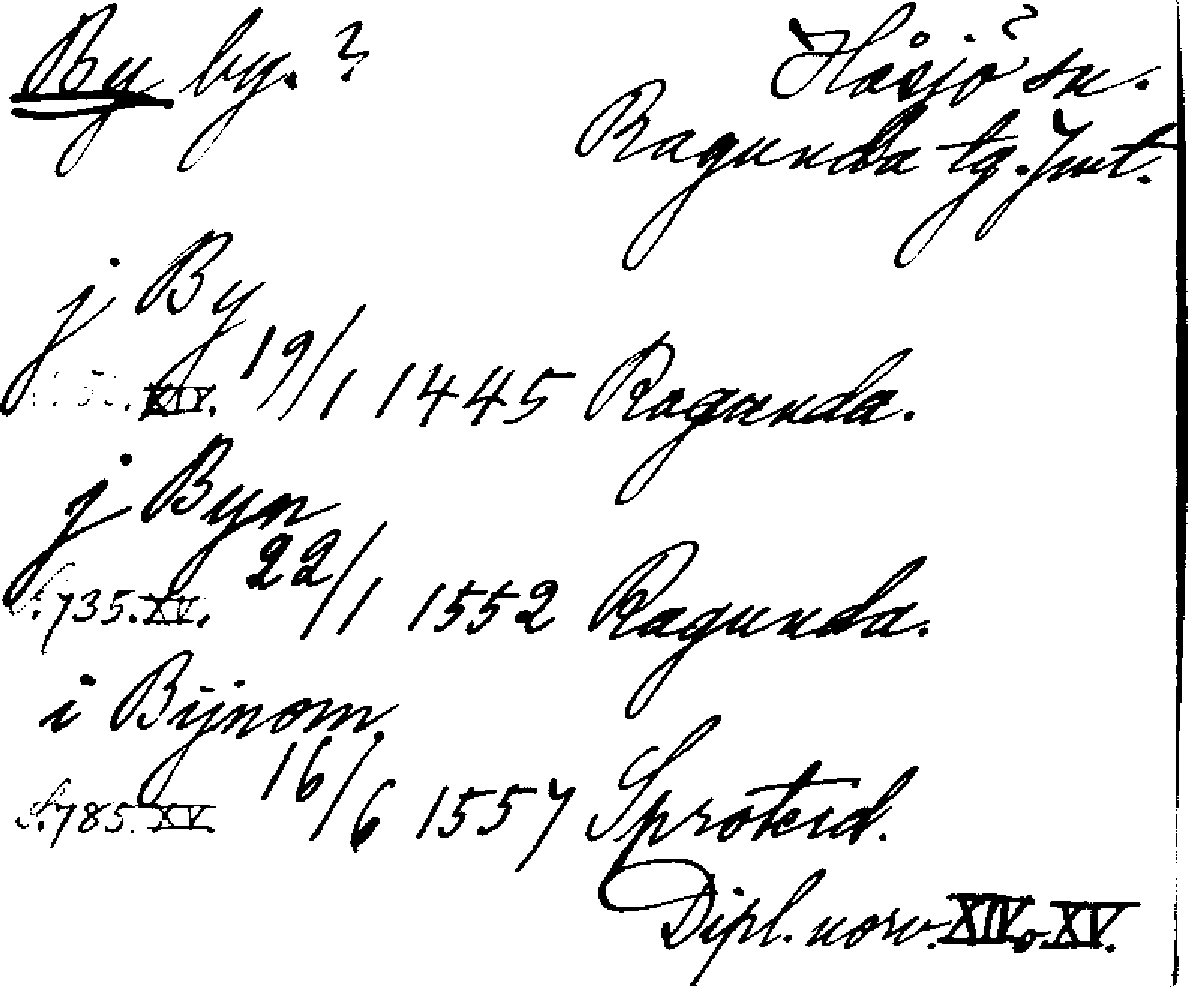 By by. ?
Håsjö ? sn.
Ragunda tg. Jmt.
j By
XIV. 19/1 1445 Ragunda.
j Byn
S. 735. XV. 22/1 1552 Ragunda.
i Bijnom
S. 785. XV. 16/6 1557 Sproteid.
Dipl. norv. XIV o. XV.